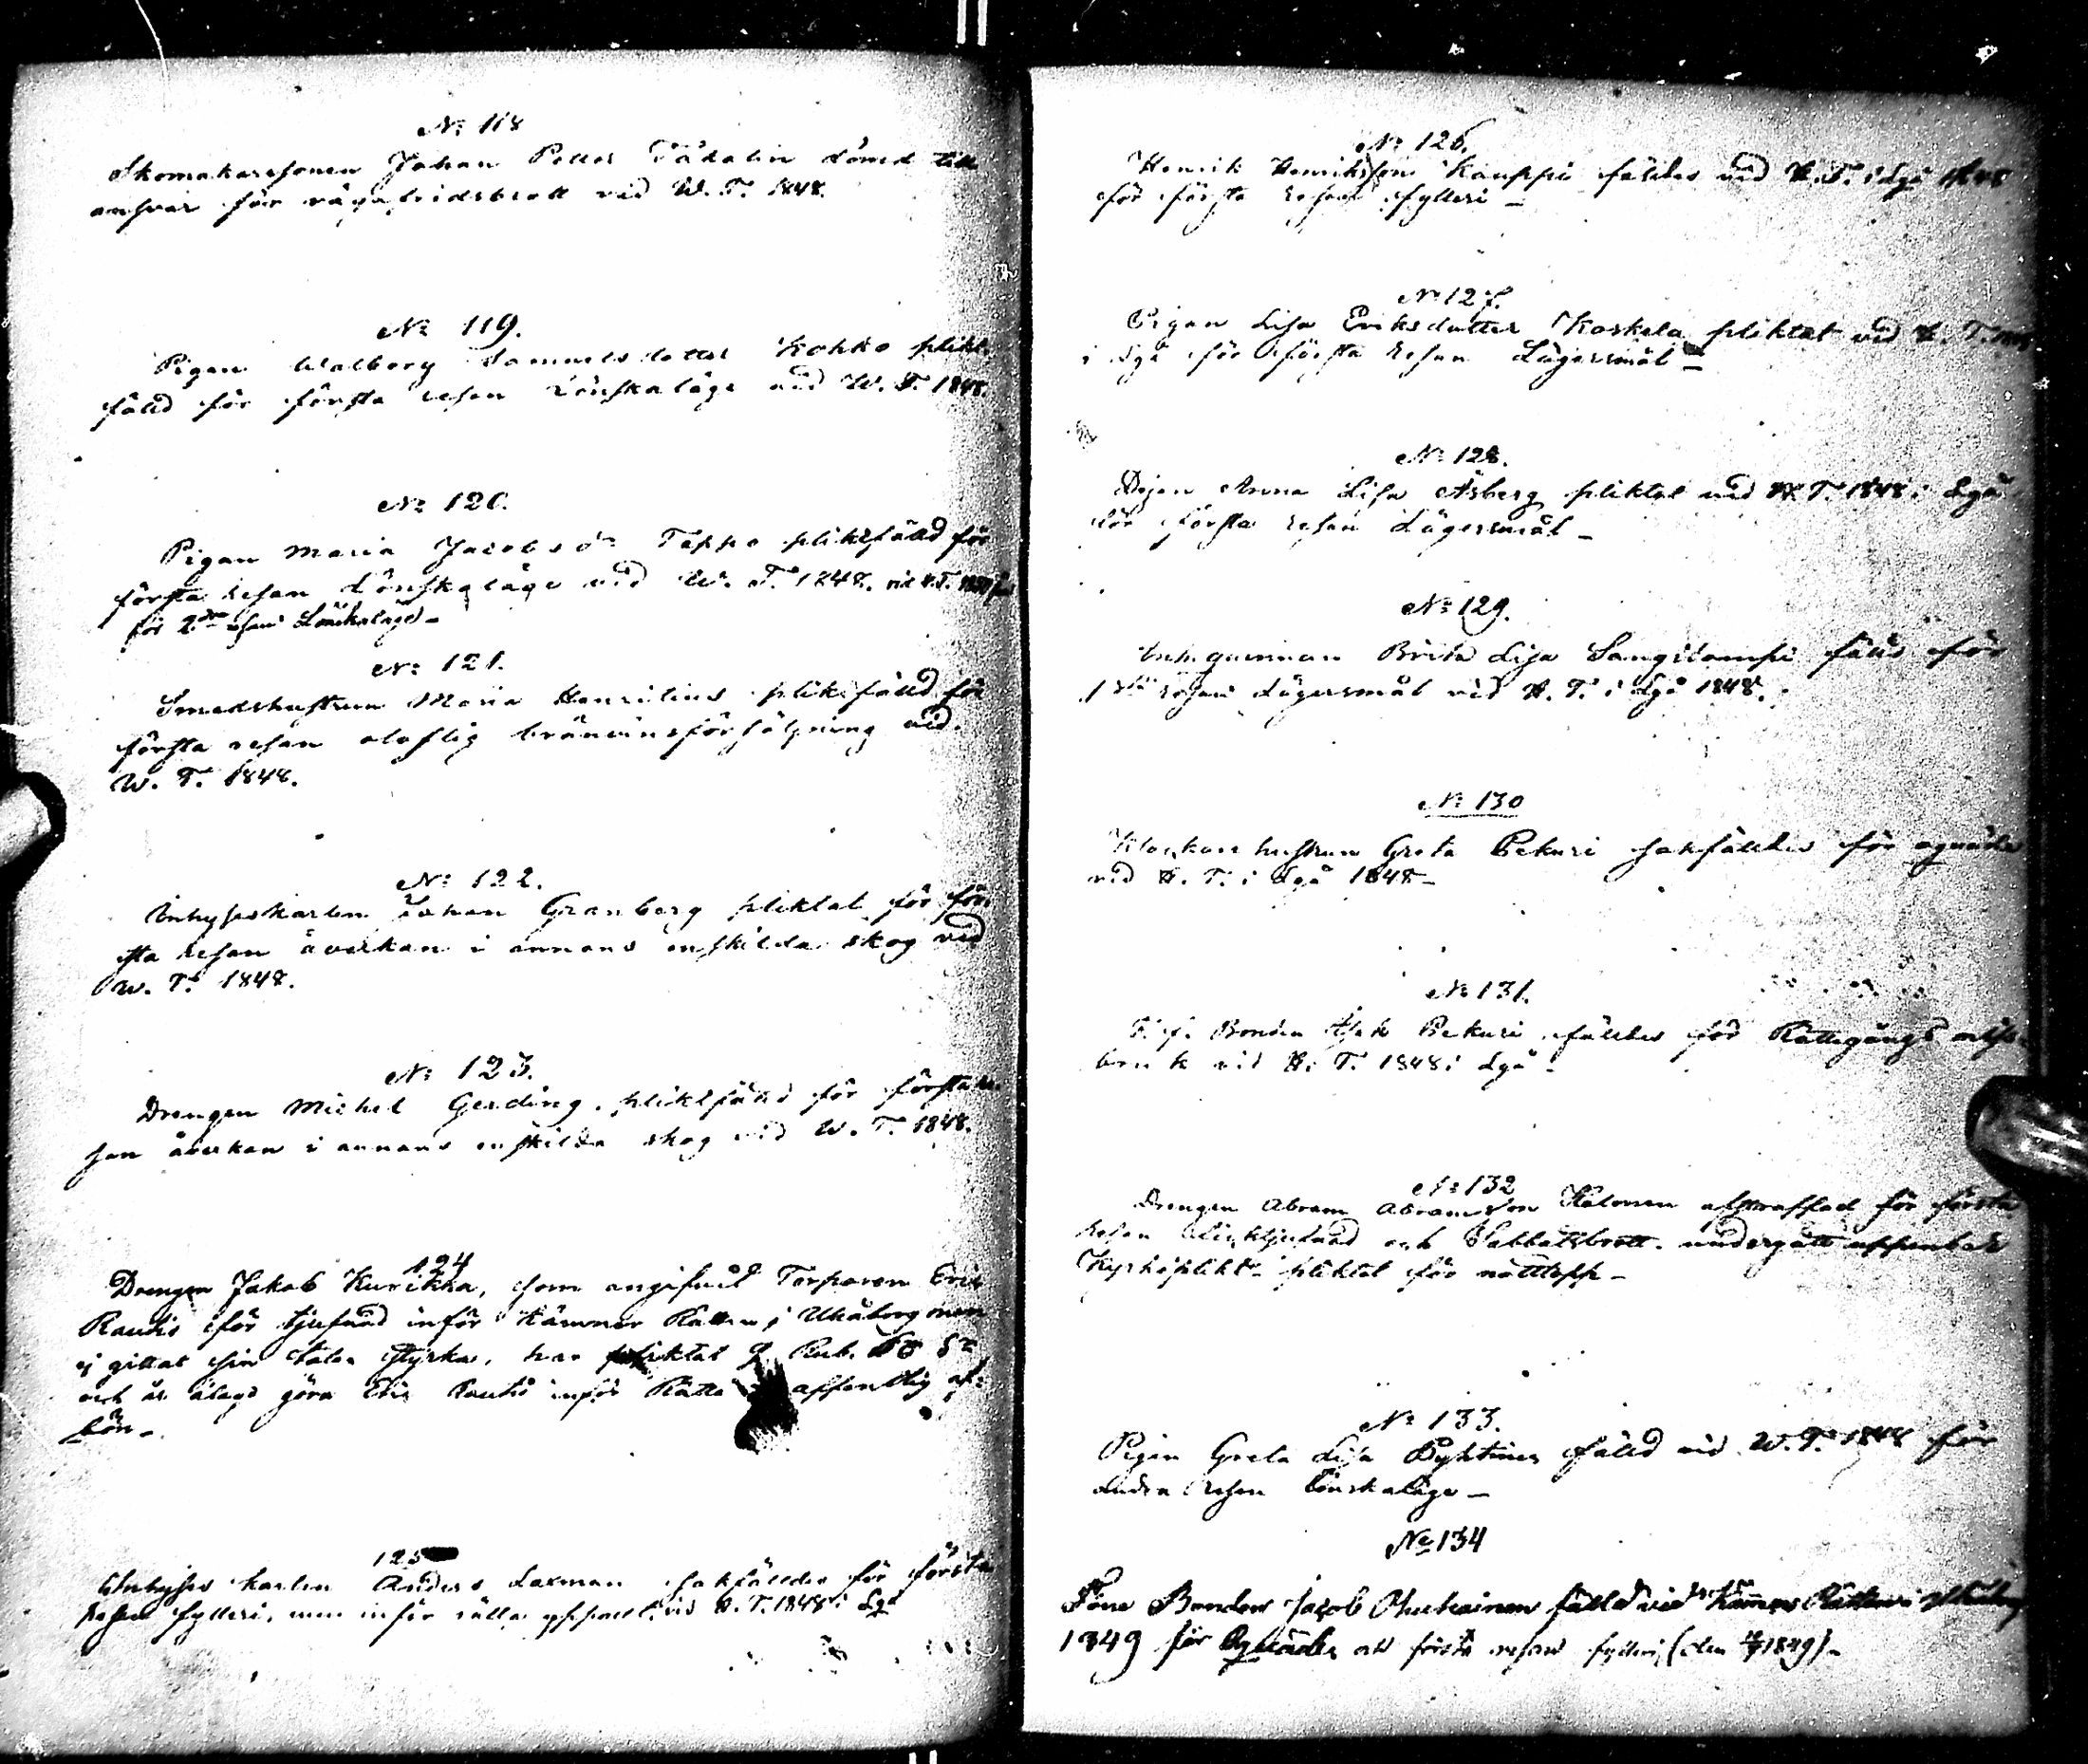 N:o 118
Skomakaresonen Johan Petter dömd till
ansvar för vägafridsbrott vid W. T. 1848.
N:o 119.
Pigan Walborg Sammelsdotter Kokko plikt
fälld för första resan Lönskaläge vid W. T. 1848.
N:o 120.
Pigan Maria Jacobs dr Tappo pliktfälld för
första resan Lönskaläge vid W. T. 1848. vid
för 2:dra resan Lönskaläge -
N:o 121.
Smedshustrun Maria pliktfälld för
första resan olaflig bränvinsförsäljning vid
W. T. 1848.
N:o 122.
Inhyseskarlen Johan Granberg pliktat för för-
sta resan åverkan i annans enskilda skog vid
W. T. 1848.
N:o 123.
Drengen Michel Gerding pliktfälld för första re-
san åverkan i annans enskilda skog vid W. T. 1848.
124
Drengen Jakob Kurikka, som angifvit Torparen Eric
Rautio för tjufnad inför Kämner Rätten i Uleåborg men
ej gittat sin talan styrka, har pliktat Rub. S:r
och är ålagd göra Eric Rautio inför Rätta offentlig af-
bön -
125
Inhyses karlen Anders Laxman sakfälldes för första
resan fylleri, men inför rätta vid H. T. 1848 i Lgå
N:o 126.
Henrik Henriksson Kauppi fälldes vid H. T. i Lgå 1848
för första resan fylleri -
N:o 127.
Pigan Lisa Eriksdotter Koskela pliktat vid H. T.
i Lgå för första resan Lägersmål -
N:o 128.
Pigan Anna Lisa Åsberg pliktat vid H. T. 1848 i Lgå
för första resan Lägersmål -
N:o 129.
Inh. qvinnan Brita Lisa fälld för
1:sta resan Lägersmål vid H. T. i Lgå 1848.
N:o 130
Klockare hustrun Greta Pekuri sakfälldes för oqväde
vid H. T. i Lgå 1848 -
N:o 131.
F. f. Bonden Isak Pekuri fälldes för Rättegångs miss-
bruk vid H. T. 1848 i Lgå -
N:o 132
Drengen Abram Abramsson afstraffad för första
resan tjufnad och Sabbatsbrott. undergått uppenbar
Kyrkoplikt - pliktat för nattlopp -
N:o 133.
Pigan Greta Lisa Pyhtinen fälld vid W. T. 1848 för
andra resan Lönskaläge -
No 134
Förre Bonden Jacob fälld vid Kämners Rätten i Uleåborg
1849 för Oqväde och första resan fylleri (den 1849) -